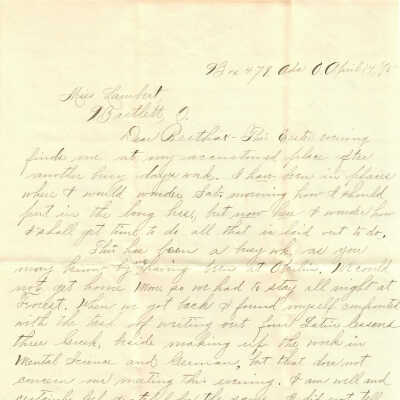 Box 478 Ada O. April 14, '95
Miss Lambert,
Bartlett, O.
Dear Bertha:- This Easter evening
finds me at my accustomed place after
another busy days work. I have been in places
where I would wonder Sat. morning how I should
put in the long hrs, but now here I wonder how
I shall get time to do all that is laid out to do.
This has been a busy wk. as you
may know by my having been at Oberlin. We could
not get home Mon. so we had to stay all night at
Forest. When we got back I found myself confronted
with the task of writing out four Latin lessons
three Greek, beside making up the work in
Mental Science and German, but that does not
concern me writing this evening. I am well and
certainly feel grateful for the same. I did not tell